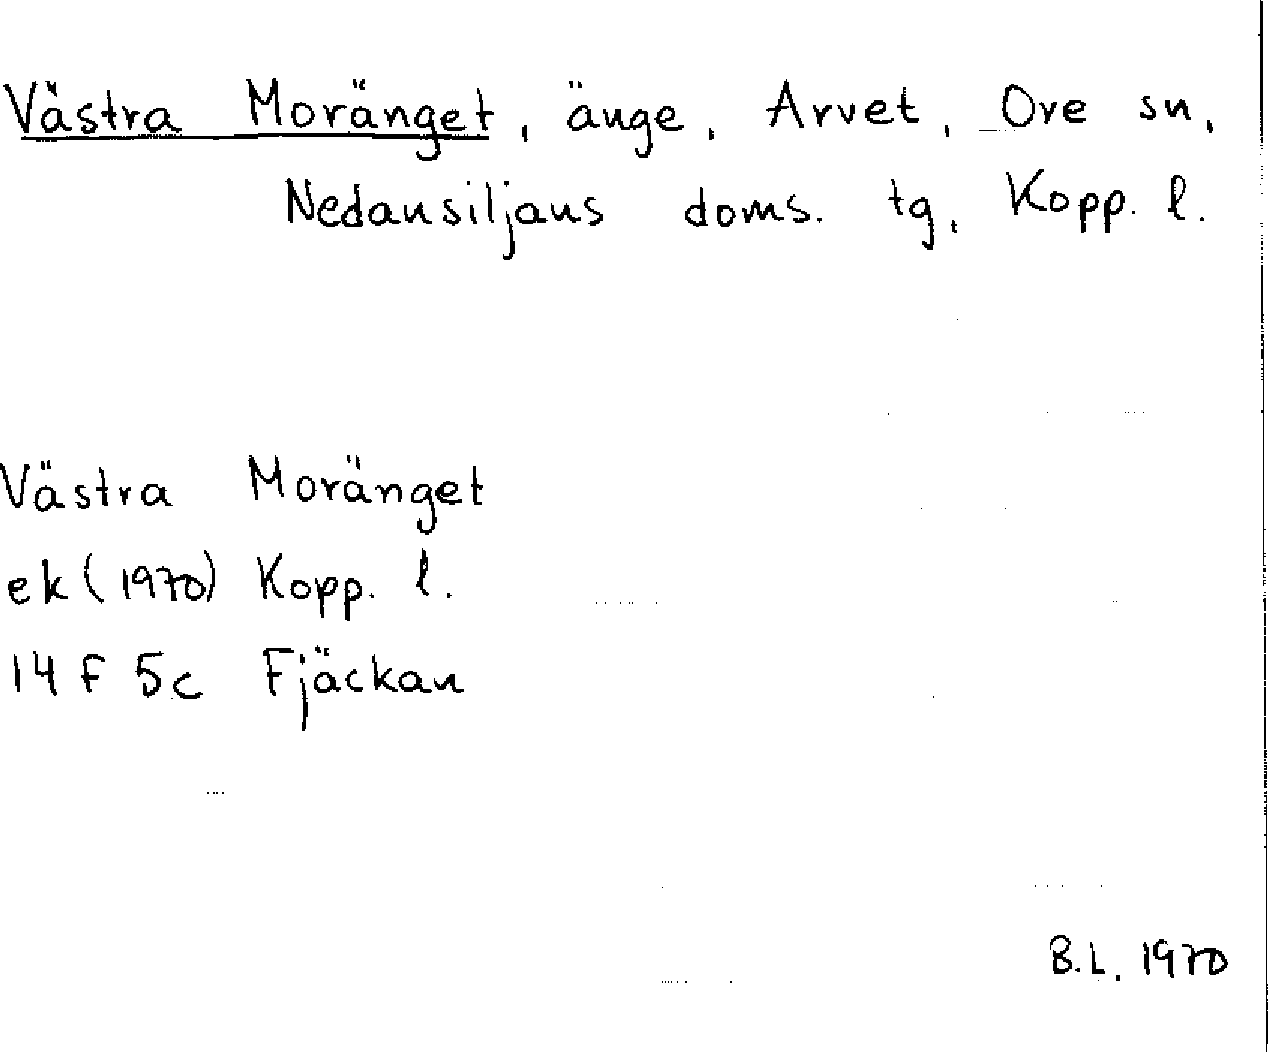 Västra Moränget, änge, Arvet, Ore sn,
Nedansiljans doms. tg, Kopp. l.
Västra Moränget
ek (1970) Kopp. l.
14 F 5c Fjäckan
B.L. 1970